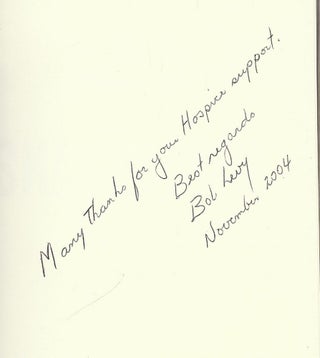 Many Thanks for your Hospice support.
Best regards
Bob Levy
November 2004